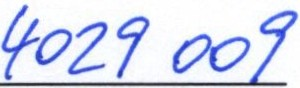 4029 009